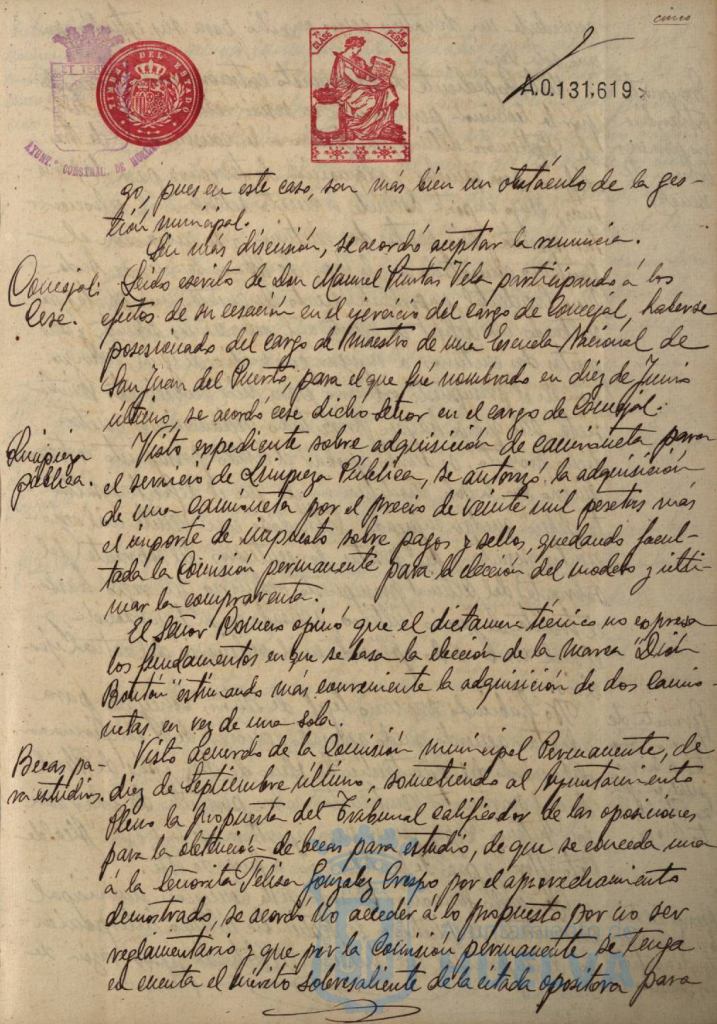 cinco
TIMBRE DEL ESTADO
7ª CLASE
A.0.131,619
AYUNT.º CONSTNAL. DE
go, pues en este caso, son más bien un obstáculo de la ges-
tión municipal.
Sin más discusión, se acordó aceptar la renuncia.
Concejal:
Cese.
Leido escrito de Don Manuel Puntas Vela participando á los
efectos de su cesación en el ejercicio del cargo de Concejal, haberse
posesionado del cargo de maestro de una Escuela Nacional de
San Juan del Puerto, para el que fué nombrado en diez de Junio
último, se acordó cese dicho señor en el cargo de Concejal.
Limpieza
pública.
Visto expediente sobre adquisición de camioneta para
el servicio de Limpieza Pública, se autorizó la adquisición
de una camioneta por el precio de veinte mil pesetas más
el importe de impuesto sobre pagos y sellos, quedando facul-
tada la Comisión permanente para la elección del modelo y ulti-
mar la compraventa.
El Señor Romero opinó que el dictamen técnico no expresa
los fundamentos en que se basa la elección de la marca "Dion
Boutón" estimando más conveniente la adquisición de dos camio-
netas en vez de una sola.
Becas pa-
ra estudios.
Visto acuerdo de la Comisión municipal Permanente, de
diez de Septiembre último, sometiendo al Ayuntamiento
Pleno la propuesta del Tribunal calificador de las oposiciones
para la obtención de becas para estudio, de que se conceda una
á la Señorita Felisa González Crespo por el aprovechamiento
demostrado, se acordó no acceder á lo propuesto por no ser
reglamentario y que por la Comisión permanente se tenga
en cuenta el mérito sobresaliente de la citada opositora para